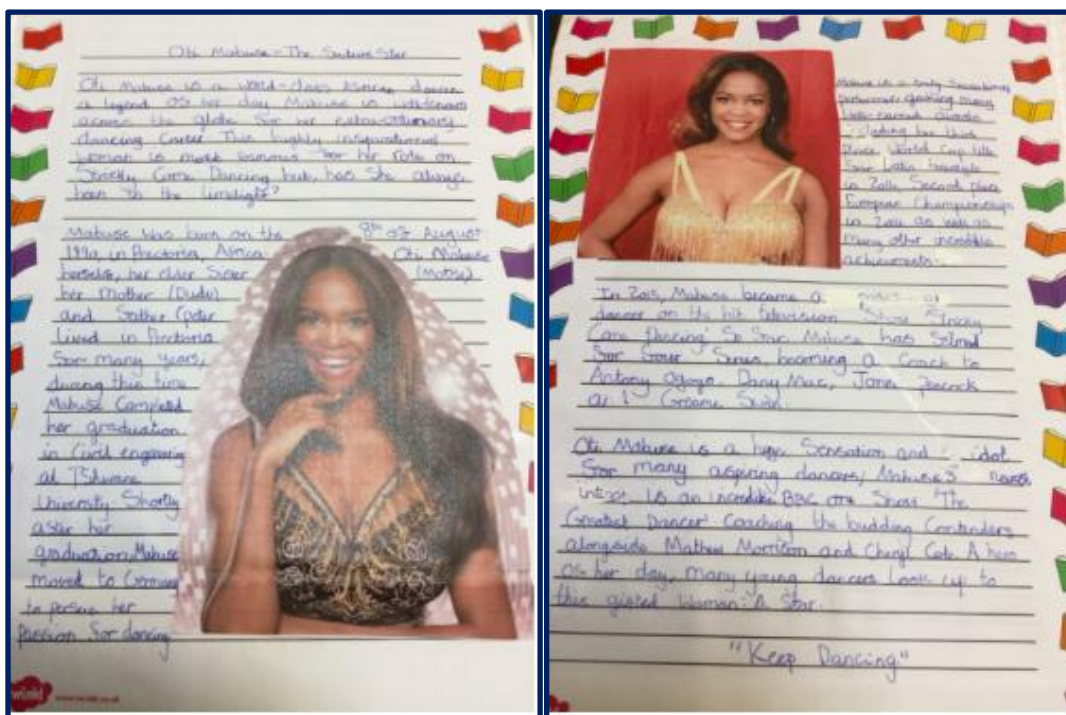 Oti Mabuse - The Future Star
Oti Mabuse is a world-class dancer
a legend of her day Mabuse is
across the globe for her
dancing Career This highly inspirational
woman is most famous for her role on
Strictly Come Dancing but, has she always
been in the limelight?
Mabuse was born on the 8th of August
1990, in Prectoria, Africa Oti Mabuse
herself, her elder Sister (Motsi)
her Mother (Dudu)
and father (peter
lived in Prectoria
for many years;
during this time
Mabuse Completed
her graduation
in Civil
at Tshwane
University Shortly
after her
graduation, Mabuse
moved to Germany
to her
passion for dancing
twinkl www.twinkl.co.uk
Mabuse is a truly
performer, gaining many
awards
including her third
place World Cup title
for Latin freestyle
in Second place
European Championships
in as well as
many other incredible
achievements.
In 2015, Mabuse became a
dancer on the hit television Show
Come Dancing' So far Mabuse has
for four Series becoming a Coach to
Antony Danny Mac, Jonn
Graeme Swan.
Oti Mabuse is a huge Sensation and idol
for many aspiring dancers; Mabuse's
is an BBC one Show 'The
Greatest Dancer' Coaching the budding Contenders
alongside Mathew Morrison and Cheryl Cole. A hero
of her day, many young dancers look up to
this gifted woman: A Star.
"Keep Dancing"